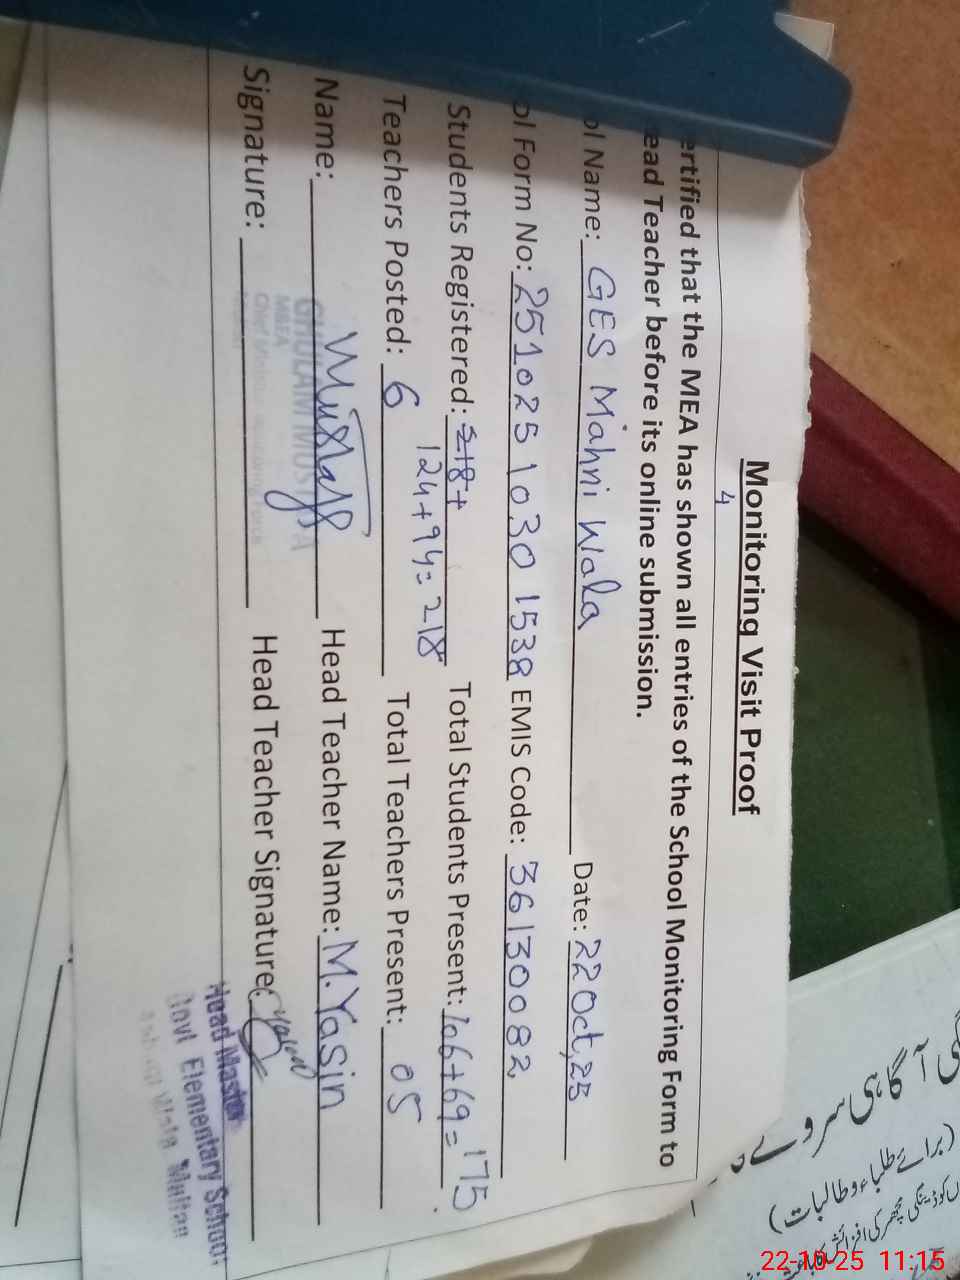 Monitoring Visit Proof
4
ertified that the MEA has shown all entries of the School Monitoring Form to
ead Teacher before its online submission.
ol Name: GES Mahni Wala Date: 22 Oct, 25
ol Form No: 251025 1030 1538 EMIS Code: 36130082
Students Registered: 218+ Total Students Present: 106+69=175
124+94=218
Teachers Posted: 6 Total Teachers Present: 05
Name: Mustafa Head Teacher Name: M. Yasin
GHULAM MUSTAFA
MEA
Signature: Head Teacher Signature: Yasin
Head Master
Govt Elementary School
Wala Multan
آگاہی سروے
(برائے طلباء و طالبات)
22-10-25 11:15